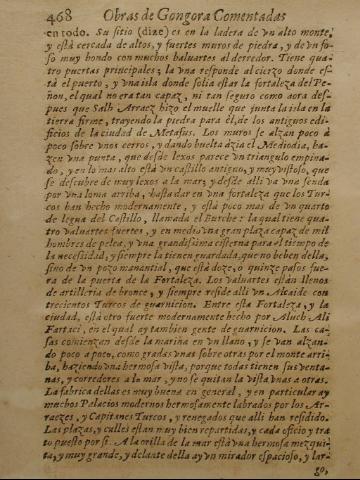 468 Obras de Gongora Comentadas
en todo. Su sitio (dize) es en la ladera de vn alto monte,
y està cercada de altos, y fuertes muros de piedra, y de vn fo-
so muy hondo con muchos baluartes al derredor. Tiene qua-
tro puertas principales; la vna responde al cierzo donde es-
tà el puerto, y vna isla donde solia estar la fortaleza del Pe-
ñon, el qual no era tan capaz, ni tan seguro como aora des-
pues que Salh Arraez hizo el muelle que junta la isla en la
tierra firme, trayendo la piedra para èl, de los antiguos edi-
ficios de la ciudad de Metafus. Los muros se alzan poco à
poco sobre vnos cerros, y dando buelta àzia el Mediodia, ha-
zen vna punta, que desde lexos parece vn triangulo empina-
do, y en lo mas alto està vn castillo antiguo, y muy vistoso, que
se descubre de muy lexos a la mar, y desde alli va vna senda
por vna loma arriba, hasta dar en vna fortaleza que los Tur-
cos han hecho modernamente, y està poco mas de vn quarto
de legua del Castillo, llamada el Burche: la qual tiene qua-
tro valuartes fuertes, y en medio vna gran plaza capaz de mil
hombres de pelea, y vna grandissima cisterna para el tiempo de
la necessidad, y siempre la tienen guardada, que no beben della,
sino de vn pozo manantial, que està doze, o quinze passos fue-
ra de la puerta de la Fortaleza. Los valuartes estàn llenos
de artilleria de bronce, y siempre reside alli vn Alcaide con
trecientos Turcos de guarnicion. Entre esta Fortaleza, y la
ciudad, està otro fuerte modernamente hecho por Aluch Ali
Fartaci, en el qual ay tambien gente de guarnicion. Las ca-
sas comienzan desde la marina en vn llano, y se van alzan-
do poco a poco, como gradas vnas sobre otras por el monte arri-
ba, haziendo vna hermosa vista, porque todas tienen sus venta-
nas, y corredores a la mar, y no se quitan la vista vnas a otras.
La fabrica dellas es muy buena en general, y en particular ay
muchos Palacios modernos hermosamente labrados por los Ar-
raezes, y Capitanes Turcos, y renegados que alli han residido.
Las plazas, y calles estàn muy bien repartidas, y cada oficio y tra
to puesto por si. A la orilla de la mar està vna hermosa mezqui-
ta, y muy grande, y delante della ay vn mirador espacioso, y lar-
go,